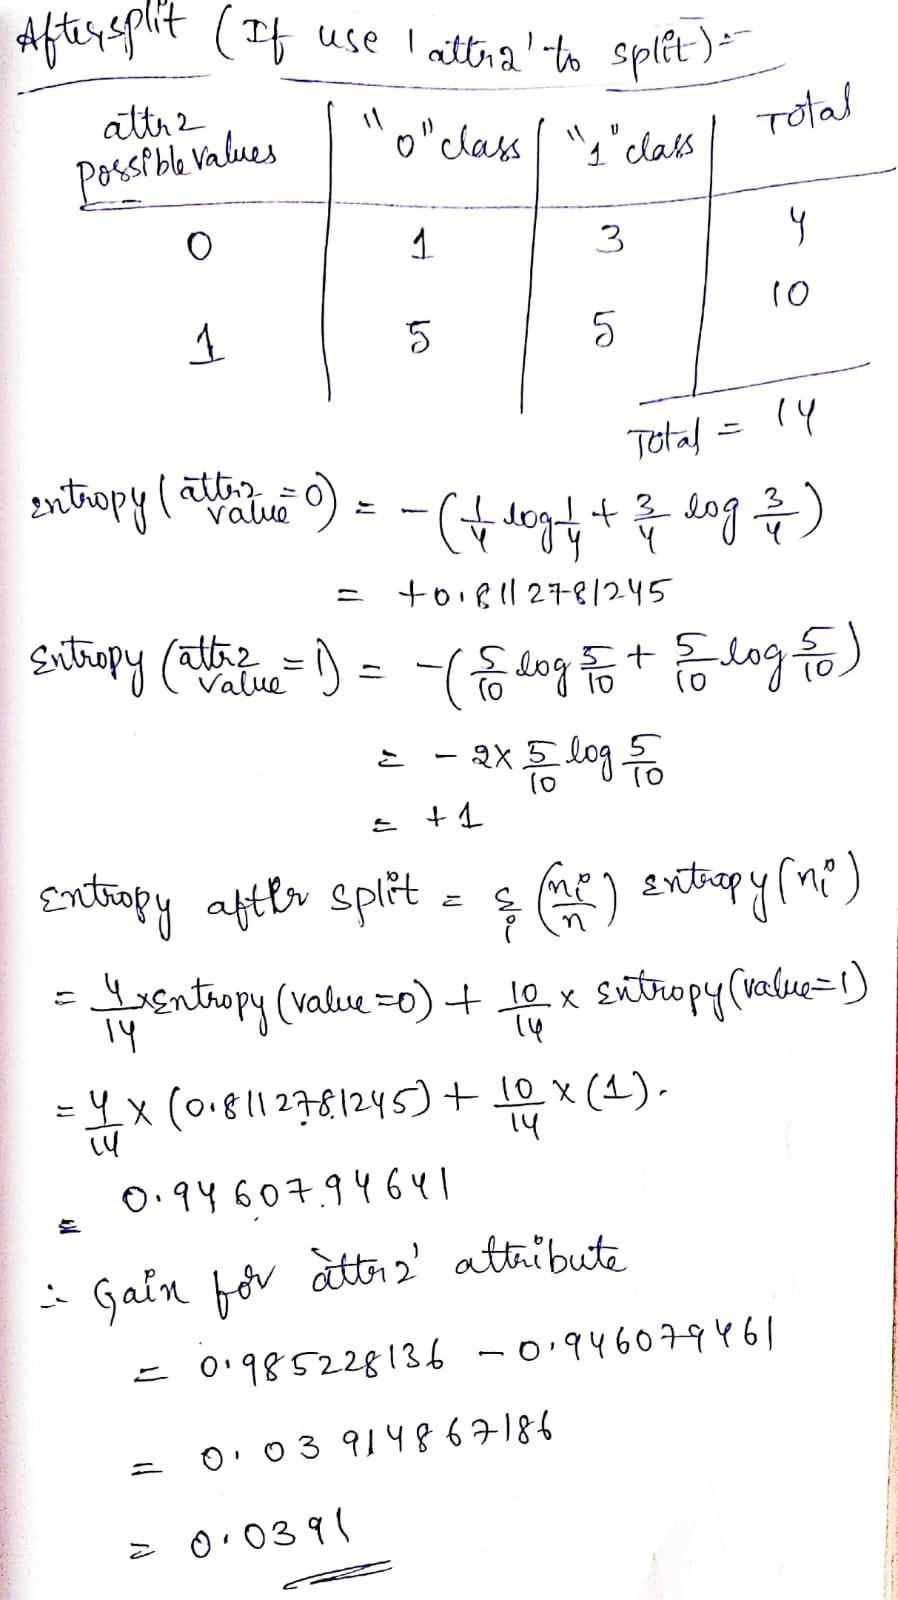 After split (If use 'attr2' to split):-
attr2 possible values | "0" class | "1" class | Total
0 | 1 | 3 | 4
1 | 5 | 5 | 10
Total = 14
entropy (attr2 value = 0) = -(1/4 log 1/4 + 3/4 log 3/4)
= +0.81127781245
Entropy (attr2 value = 1) = -(5/10 log 5/10 + 5/10 log 5/10)
= - 2 x 5/10 log 5/10
= +1
Entropy after split = Σi (ni/n) entropy (ni)
= 4/14 x Entropy (value = 0) + 10/14 x Entropy (value = 1)
= 4/14 x (0.81127781245) + 10/14 x (1).
= 0.9460794641
∴ Gain for 'attr2' attribute
= 0.985228136 - 0.946079461
= 0.03914867186
= 0.0391